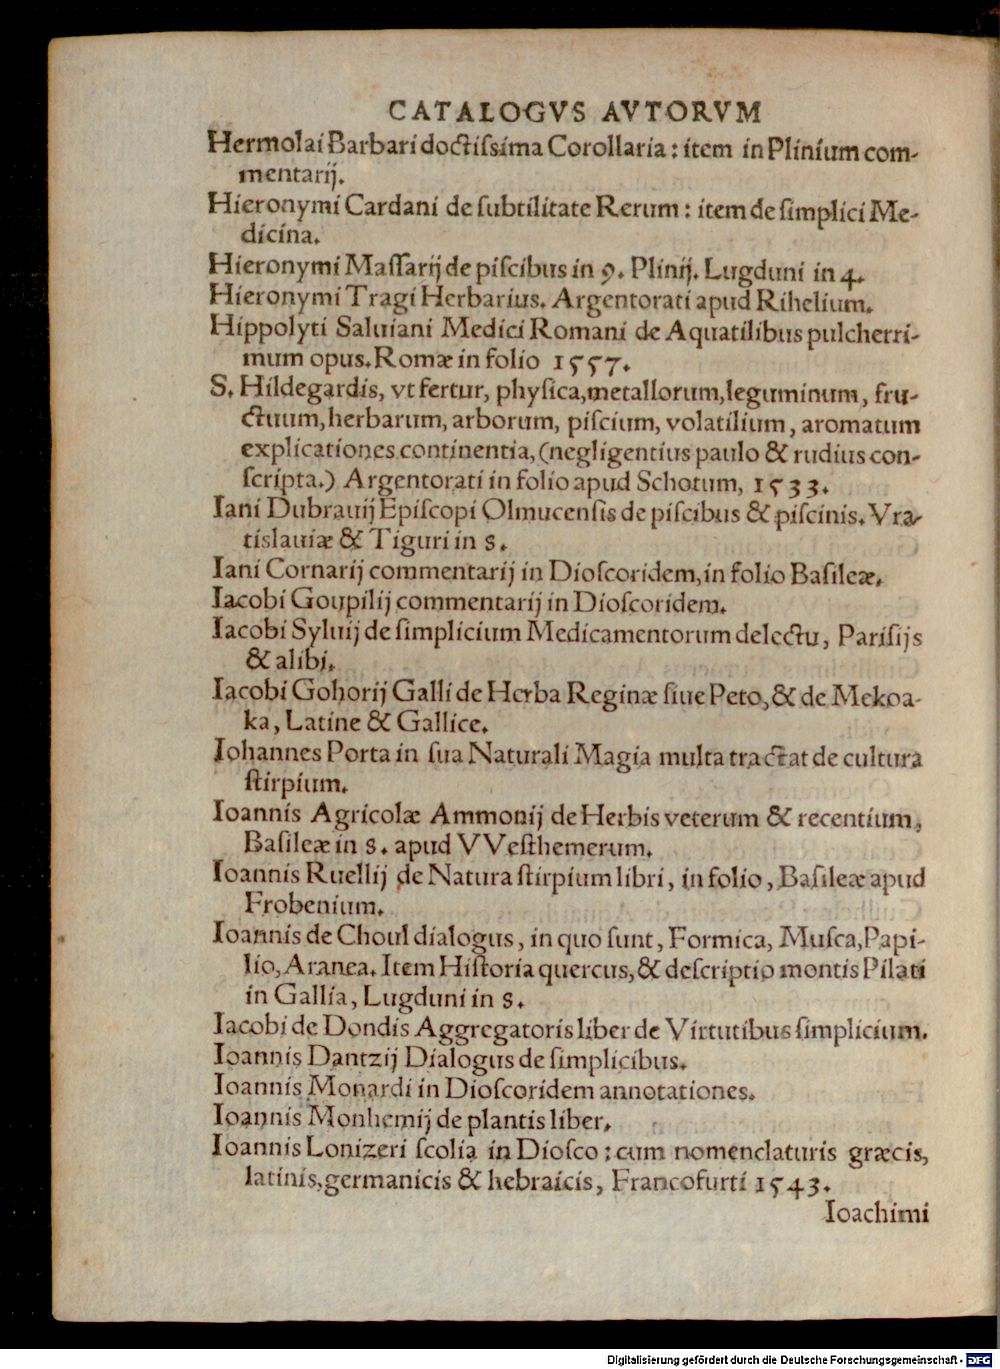 CATALOGVS AVTORVM
Hermolai Barbari doctiſsima Corollaria: item in Plinium com-
mentarij.
Hieronymi Cardani de ſubtilitate Rerum: item de ſimplici Me-
dicina.
Hieronymi Maſſarij de piſcibus in 9. Plinij. Lugduni in 4.
Hieronymi Tragi Herbarius. Argentorati apud Rihelium.
Hippolyti Saluiani Medici Romani de Aquatilibus pulcherri-
mum opus. Romæ in folio 1557.
S. Hildegardis, vt fertur, phyſica, metallorum, leguminum, fru-
ctuum, herbarum, arborum, piſcium, volatilium, aromatum
explicationes continentia, (negligentius paulo & rudius con-
ſcripta.) Argentorati in folio apud Schotum, 1533.
Iani Dubrauij Epiſcopi Olmucenſis de piſcibus & piſcinis. Vra-
tislauiæ & Tiguri in 8.
Iani Cornarij commentarij in Dioſcoridem, in folio Baſileæ.
Iacobi Goupilij commentarij in Dioſcoridem.
Iacobi Syluij de ſimplicium Medicamentorum delectu, Pariſijs
& alibi.
Iacobi Gohorij Galli de Herba Reginæ ſiue Peto, & de Mekoa-
ka, Latine & Gallice.
Iohannes Porta in ſua Naturali Magia multa tractat de cultura
ſtirpium.
Ioannis Agricolæ Ammonij de Herbis veterum & recentium,
Baſileæ in 8. apud VVeſthemerum.
Ioannis Ruellij de Natura ſtirpium libri, in folio, Baſileæ apud
Frobenium.
Ioannis de Choul dialogus, in quo ſunt, Formica, Muſca, Papi-
lio, Aranea. Item Hiſtoria quercus, & deſcriptio montis Pilati
in Gallia, Lugduni in 8.
Iacobi de Dondis Aggregatoris liber de Virtutibus ſimplicium.
Ioannis Dantzij Dialogus de ſimplicibus.
Ioannis Monardi in Dioſcoridem annotationes.
Ioannis Monhemij de plantis liber.
Ioannis Lonizeri ſcolia in Dioſco: cum nomenclaturis græcis,
latinis, germanicis & hebraicis, Francofurti 1543.
Ioachimi
Digitalisierung gefördert durch die Deutsche Forschungsgemeinschaft - DFG